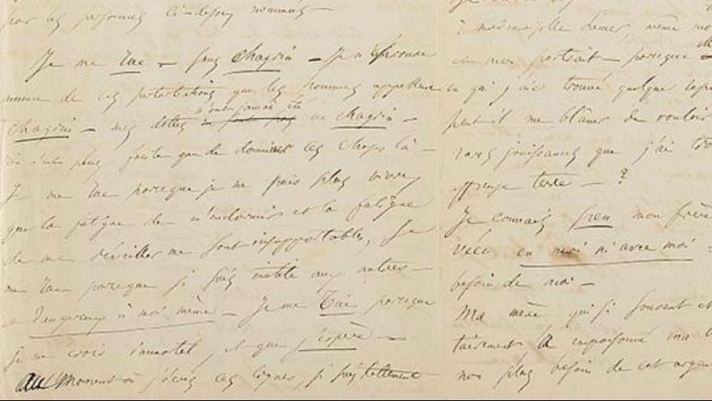 par les personnes ci-dessous nommées —
Je me tue — sans chagrin — Je n'éprouve
aucune de ces perturbations que les hommes appellent
n'ont jamais été
chagrin — mes dettes un chagrin —
Rien n'est plus facile que de dominer ces choses là —
Je me tue parceque je ne puis plus vivre,
que la fatigue de m'endormir et la fatigue
de me réveiller me sont insupportables, Je
me tue parceque je suis inutile aux autres —
et dangereux à moi même — Je me tue parceque
je me crois immortel, et que j'espère —
Au moment où j'écris ces lignes, je suis tellement
à mademoiselle Lemer, même mo
et mon portrait — parceque
en qui j'ai trouvé quelque repo
peut-il me blâmer de vouloir
rares jouissances que j'ai tro
affreuse terre — ?
Je connais peu mon frère
vécu en moi ni avec moi —
besoin de moi —
Ma mère, qui si souvent et
tairement a empoisonné ma
non plus besoin de cet argen